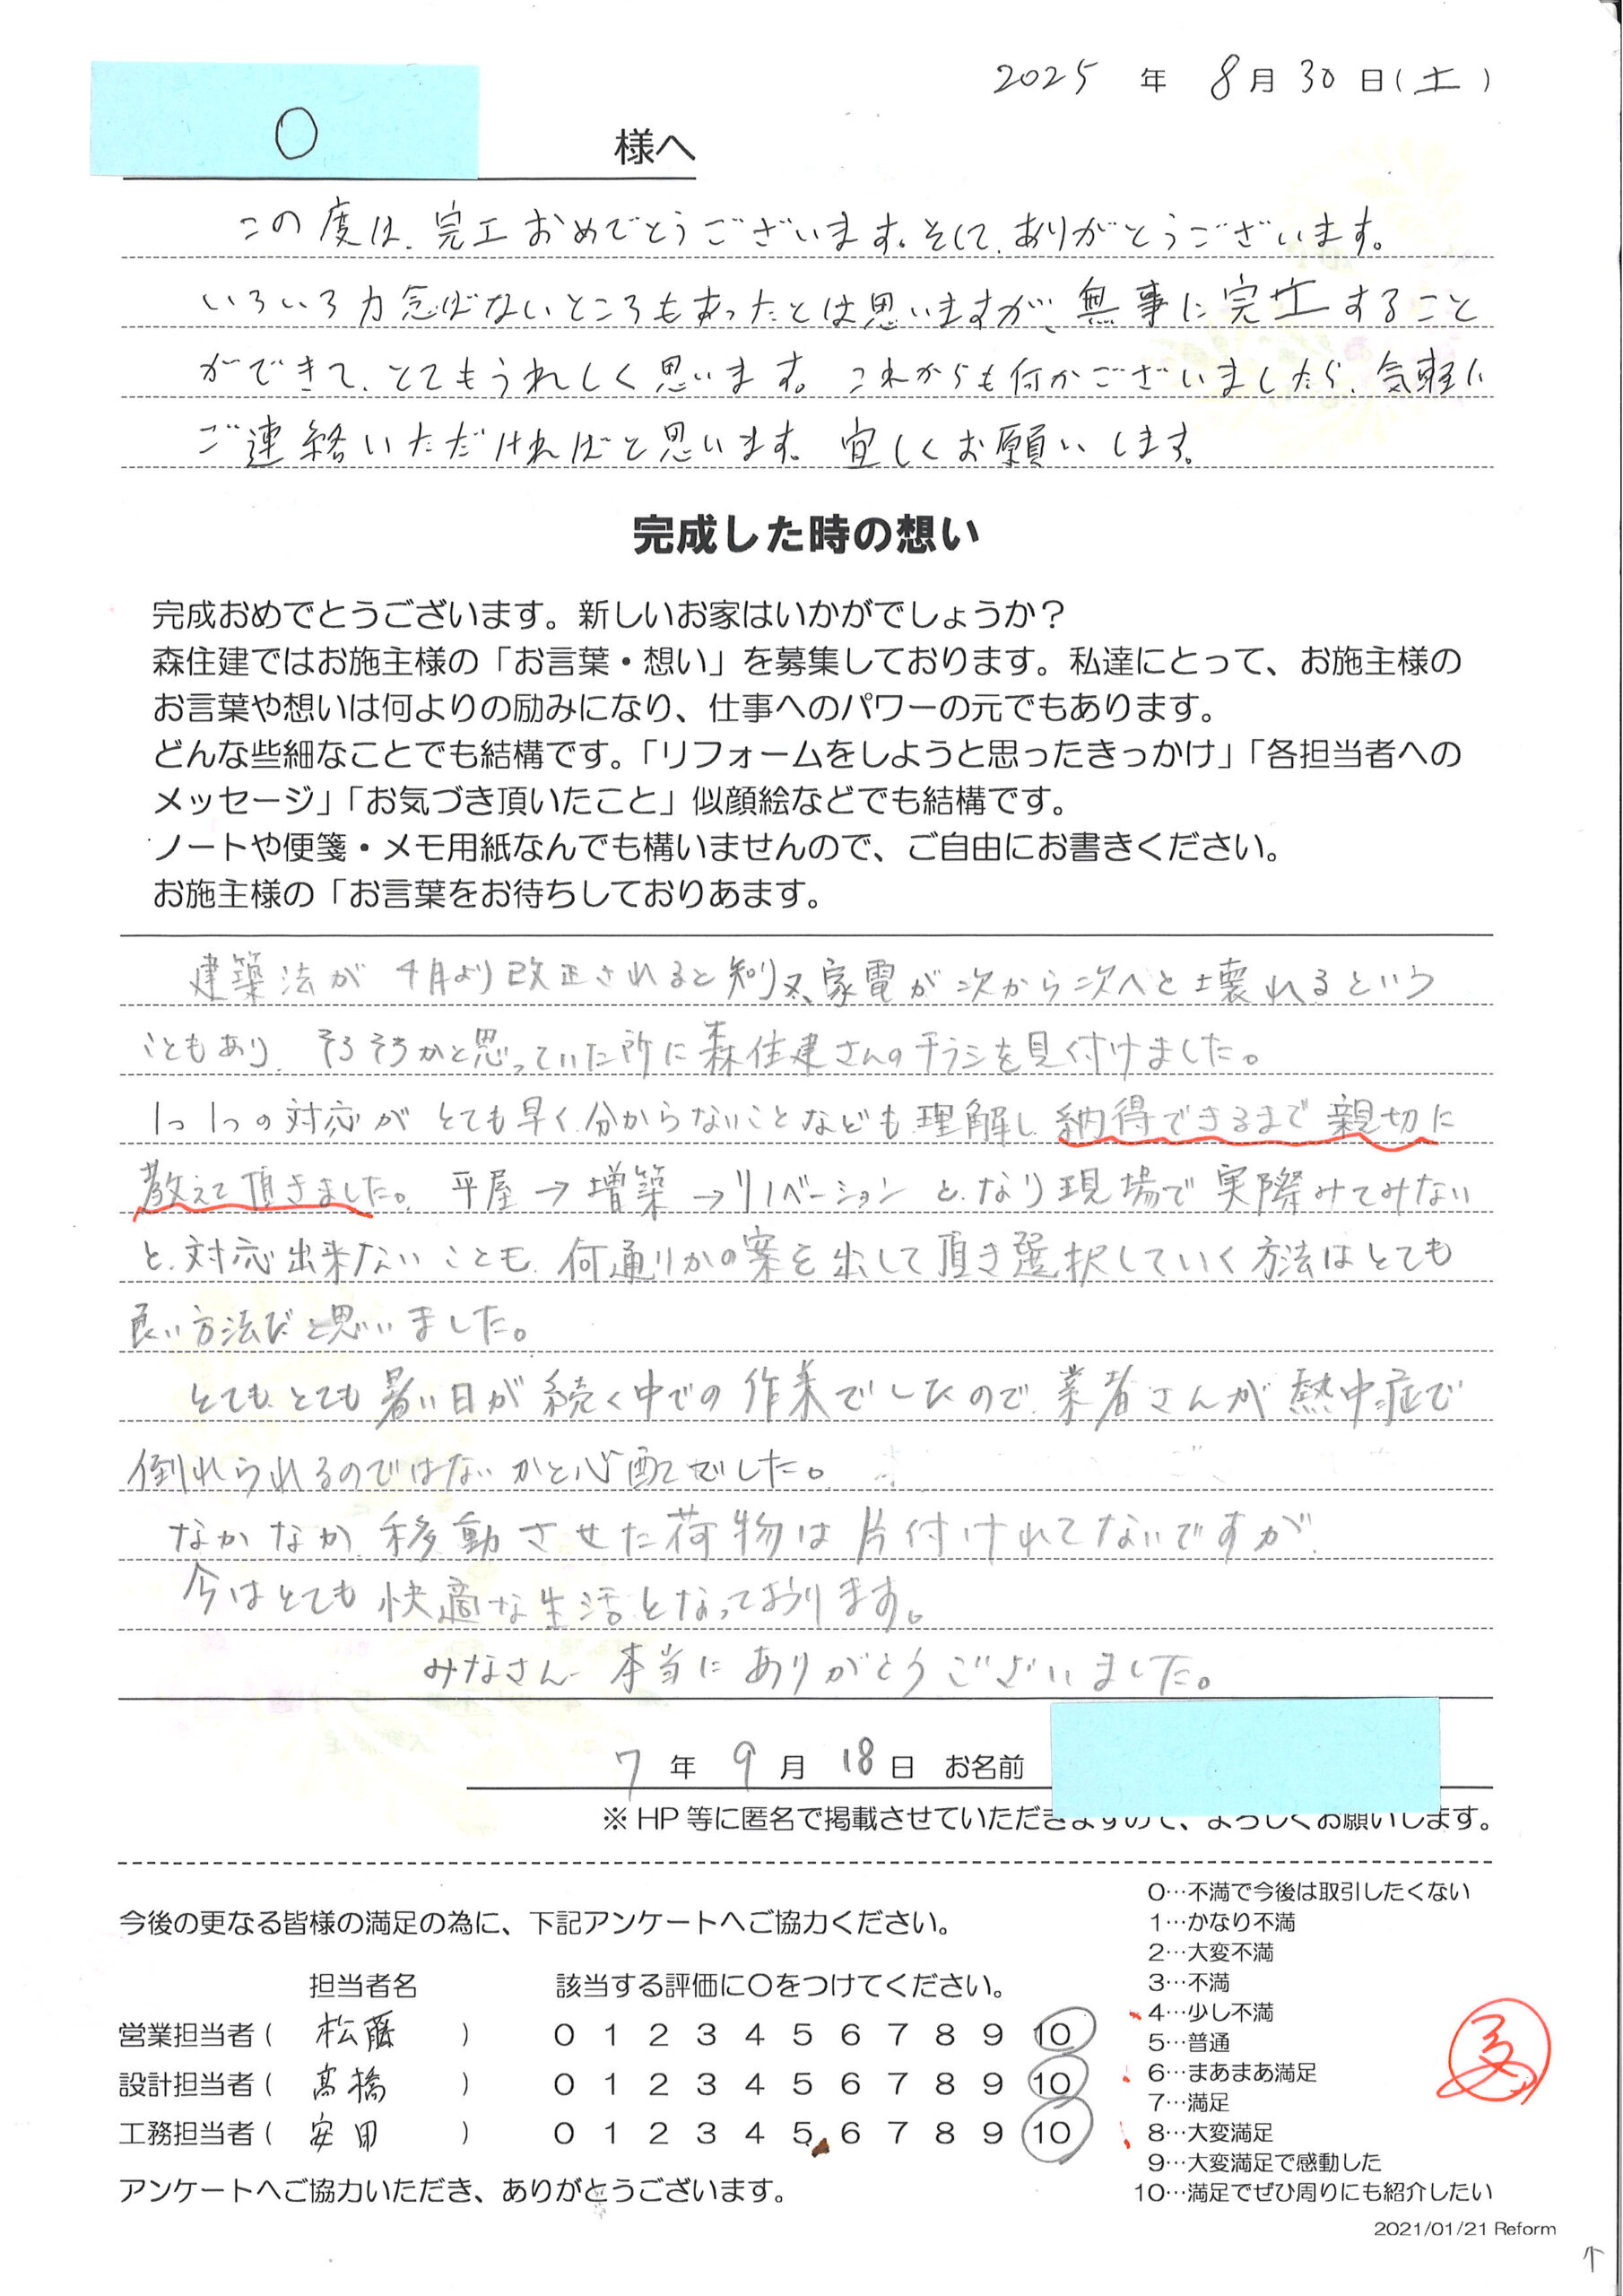 2025 年 8月 30日(土)
O 様へ
この度は、完工おめでとうございます。そして、ありがとうございます。
いろいろ力念ばないところもあったとは思いますが、無事に完工すること
ができて、とてもうれしく思います。これからも何かございましたら、気軽に
ご連絡いただければと思います。宜しくお願いします。
完成した時の想い
完成おめでとうございます。新しいお家はいかがでしょうか？
森住建ではお施主様の「お言葉・想い」を募集しております。私達にとって、お施主様の
お言葉や想いは何よりの励みになり、仕事へのパワーの元でもあります。
どんな些細なことでも結構です。「リフォームをしようと思ったきっかけ」「各担当者への
メッセージ」「お気づき頂いたこと」似顔絵などでも結構です。
ノートや便箋・メモ用紙なんでも構いませんので、ご自由にお書きください。
お施主様の「お言葉をお待ちしておりあます。
建築法が 4月より改正されると知り又、家電が次から次へと壊れるという
こともあり、そろそろかと思っていた所に森住建さんのチラシを見付けました。
1つ1つの対応がとても早く、分からないことなども理解し納得できるまで親切に
教えて頂きました。平屋→増築→リノベーションと、なり現場で実際みてみない
と、対応出来ないことも、何通りかの案を出して頂き選択していく方法はとても
良い方法だと思いました。
とてもとても暑い日が続く中での作業でしたので、業者さんが熱中症で
倒れられるのではないかと心配でした。
なかなか移動させた荷物は片付けれてないですが、
今はとても快適な生活となっております。
みなさん 本当にありがとうございました。
7 年 9 月 18 日 お名前
※HP 等に匿名で掲載させていただきますので、よろしくお願いします。
今後の更なる皆様の満足の為に、下記アンケートへご協力ください。
担当者名 該当する評価に○をつけてください。
営業担当者( 松藤 ) 0 1 2 3 4 5 6 7 8 9 10
設計担当者( 髙橋 ) 0 1 2 3 4 5 6 7 8 9 10
工務担当者( 安田 ) 0 1 2 3 4 5 6 7 8 9 10
アンケートへご協力いただき、ありがとうございます。
0…不満で今後は取引したくない
1…かなり不満
2…大変不満
3…不満
4…少し不満
5…普通
6…まあまあ満足
7…満足
8…大変満足
9…大変満足で感動した
10…満足でぜひ周りにも紹介したい
2021/01/21 Reform